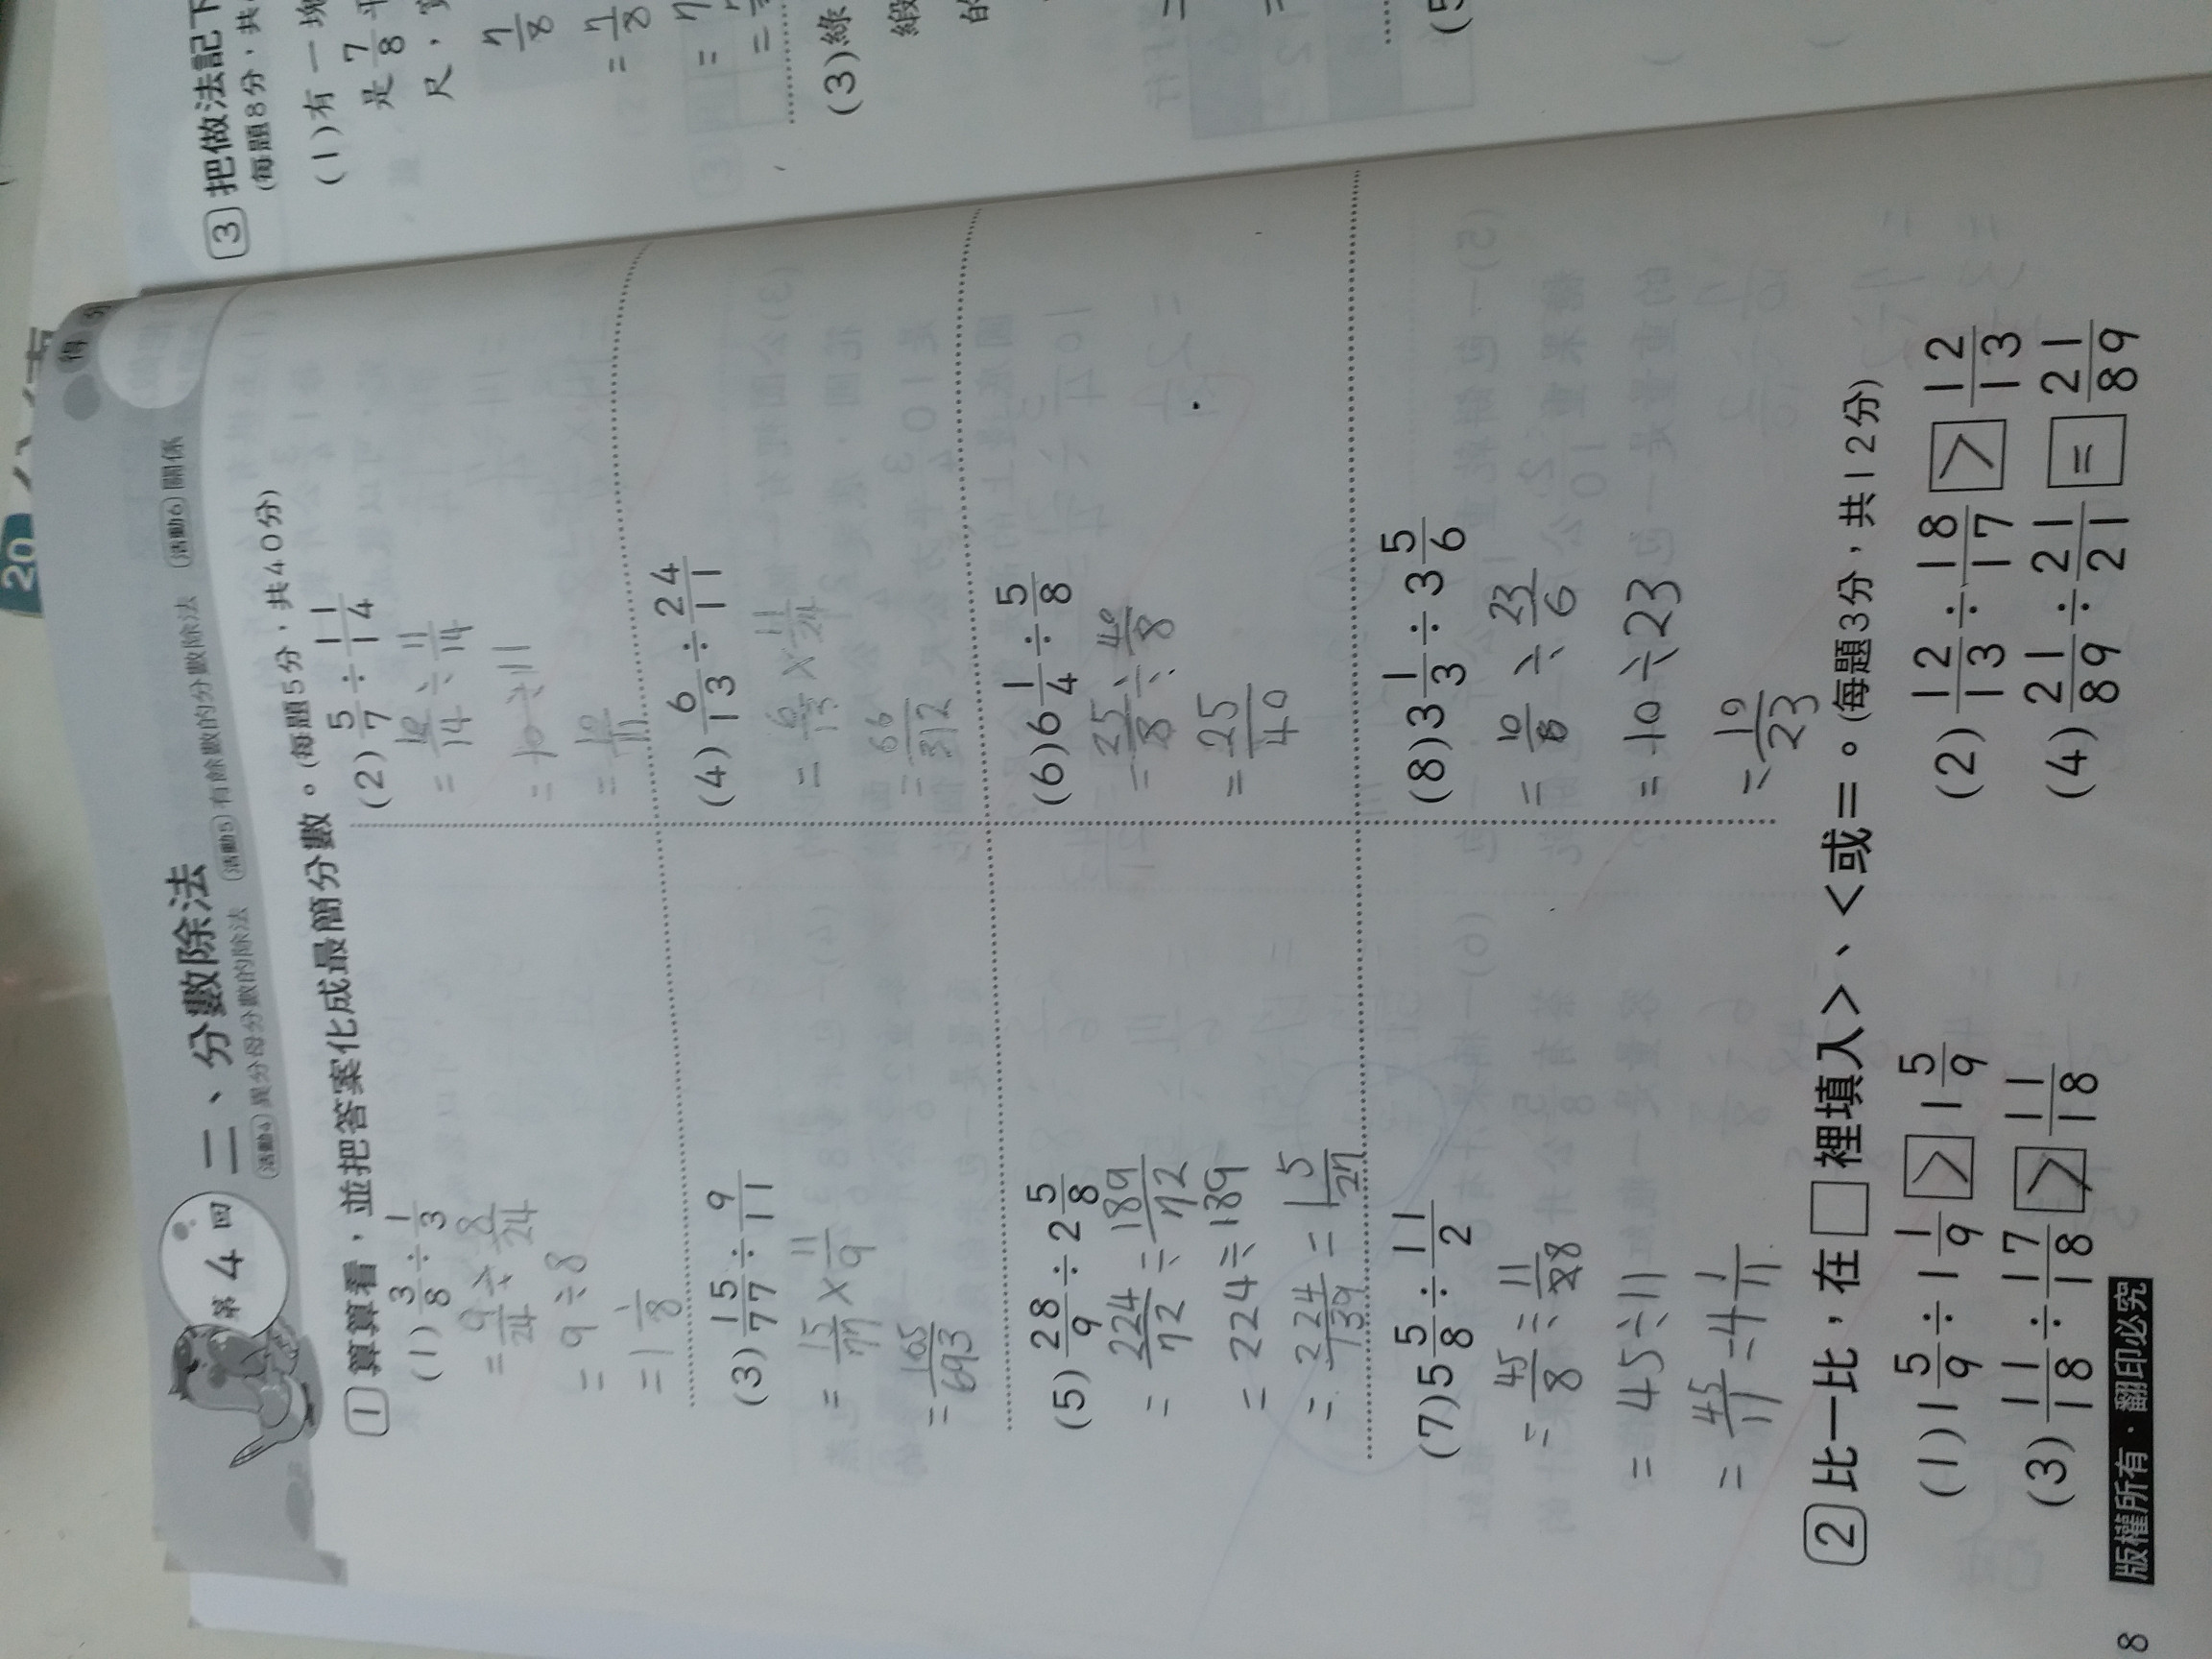 第4回 二、分數除法
活動4 異分母分數的除法 活動5 有餘數的分數除法 活動6 關係
得分
1 算算看，並把答案化成最簡分數。(每題5分，共40分)
(1) 3/8 ÷ 1/3
= 9/24 ÷ 8/24
= 9 ÷ 8
= 1 1/8
(2) 5/7 ÷ 11/14
= 10/14 ÷ 11/14
= 10 ÷ 11
= 10/11
(3) 15/77 ÷ 9/11
= 15/77 × 11/9
= 165/693
(4) 6/13 ÷ 24/11
= 6/13 × 11/24
= 66/312
(5) 28/9 ÷ 2 5/8
= 224/72 ÷ 189/72
= 224 ÷ 189
= 224/189 = 1 5/27
(6) 6 1/4 ÷ 5/8
= 25/8 ÷ 40/8
= 25/40
(7) 5 5/8 ÷ 11/2
= 45/8 ÷ 11/8
= 45 ÷ 11
= 45/11 = 4 1/11
(8) 3 1/3 ÷ 3 5/6
= 10/6 ÷ 23/6
= 10 ÷ 23
= 10/23
2 比一比，在□裡填入>、<或=。(每題3分，共12分)
(1) 1 5/9 ÷ 1 1/9 > 1 5/9
(2) 12/13 ÷ 18/17 > 12/13
(3) 11/18 ÷ 17/18 > 11/18
(4) 21/89 ÷ 21/21 = 21/89
8 版權所有・翻印必究
3 把做法記下
(每題8分，共
(1) 有一塊
是 7/8 平
尺，寬
7/8
= 7/8
= 7
(3) 綠
緞
的
(5
20